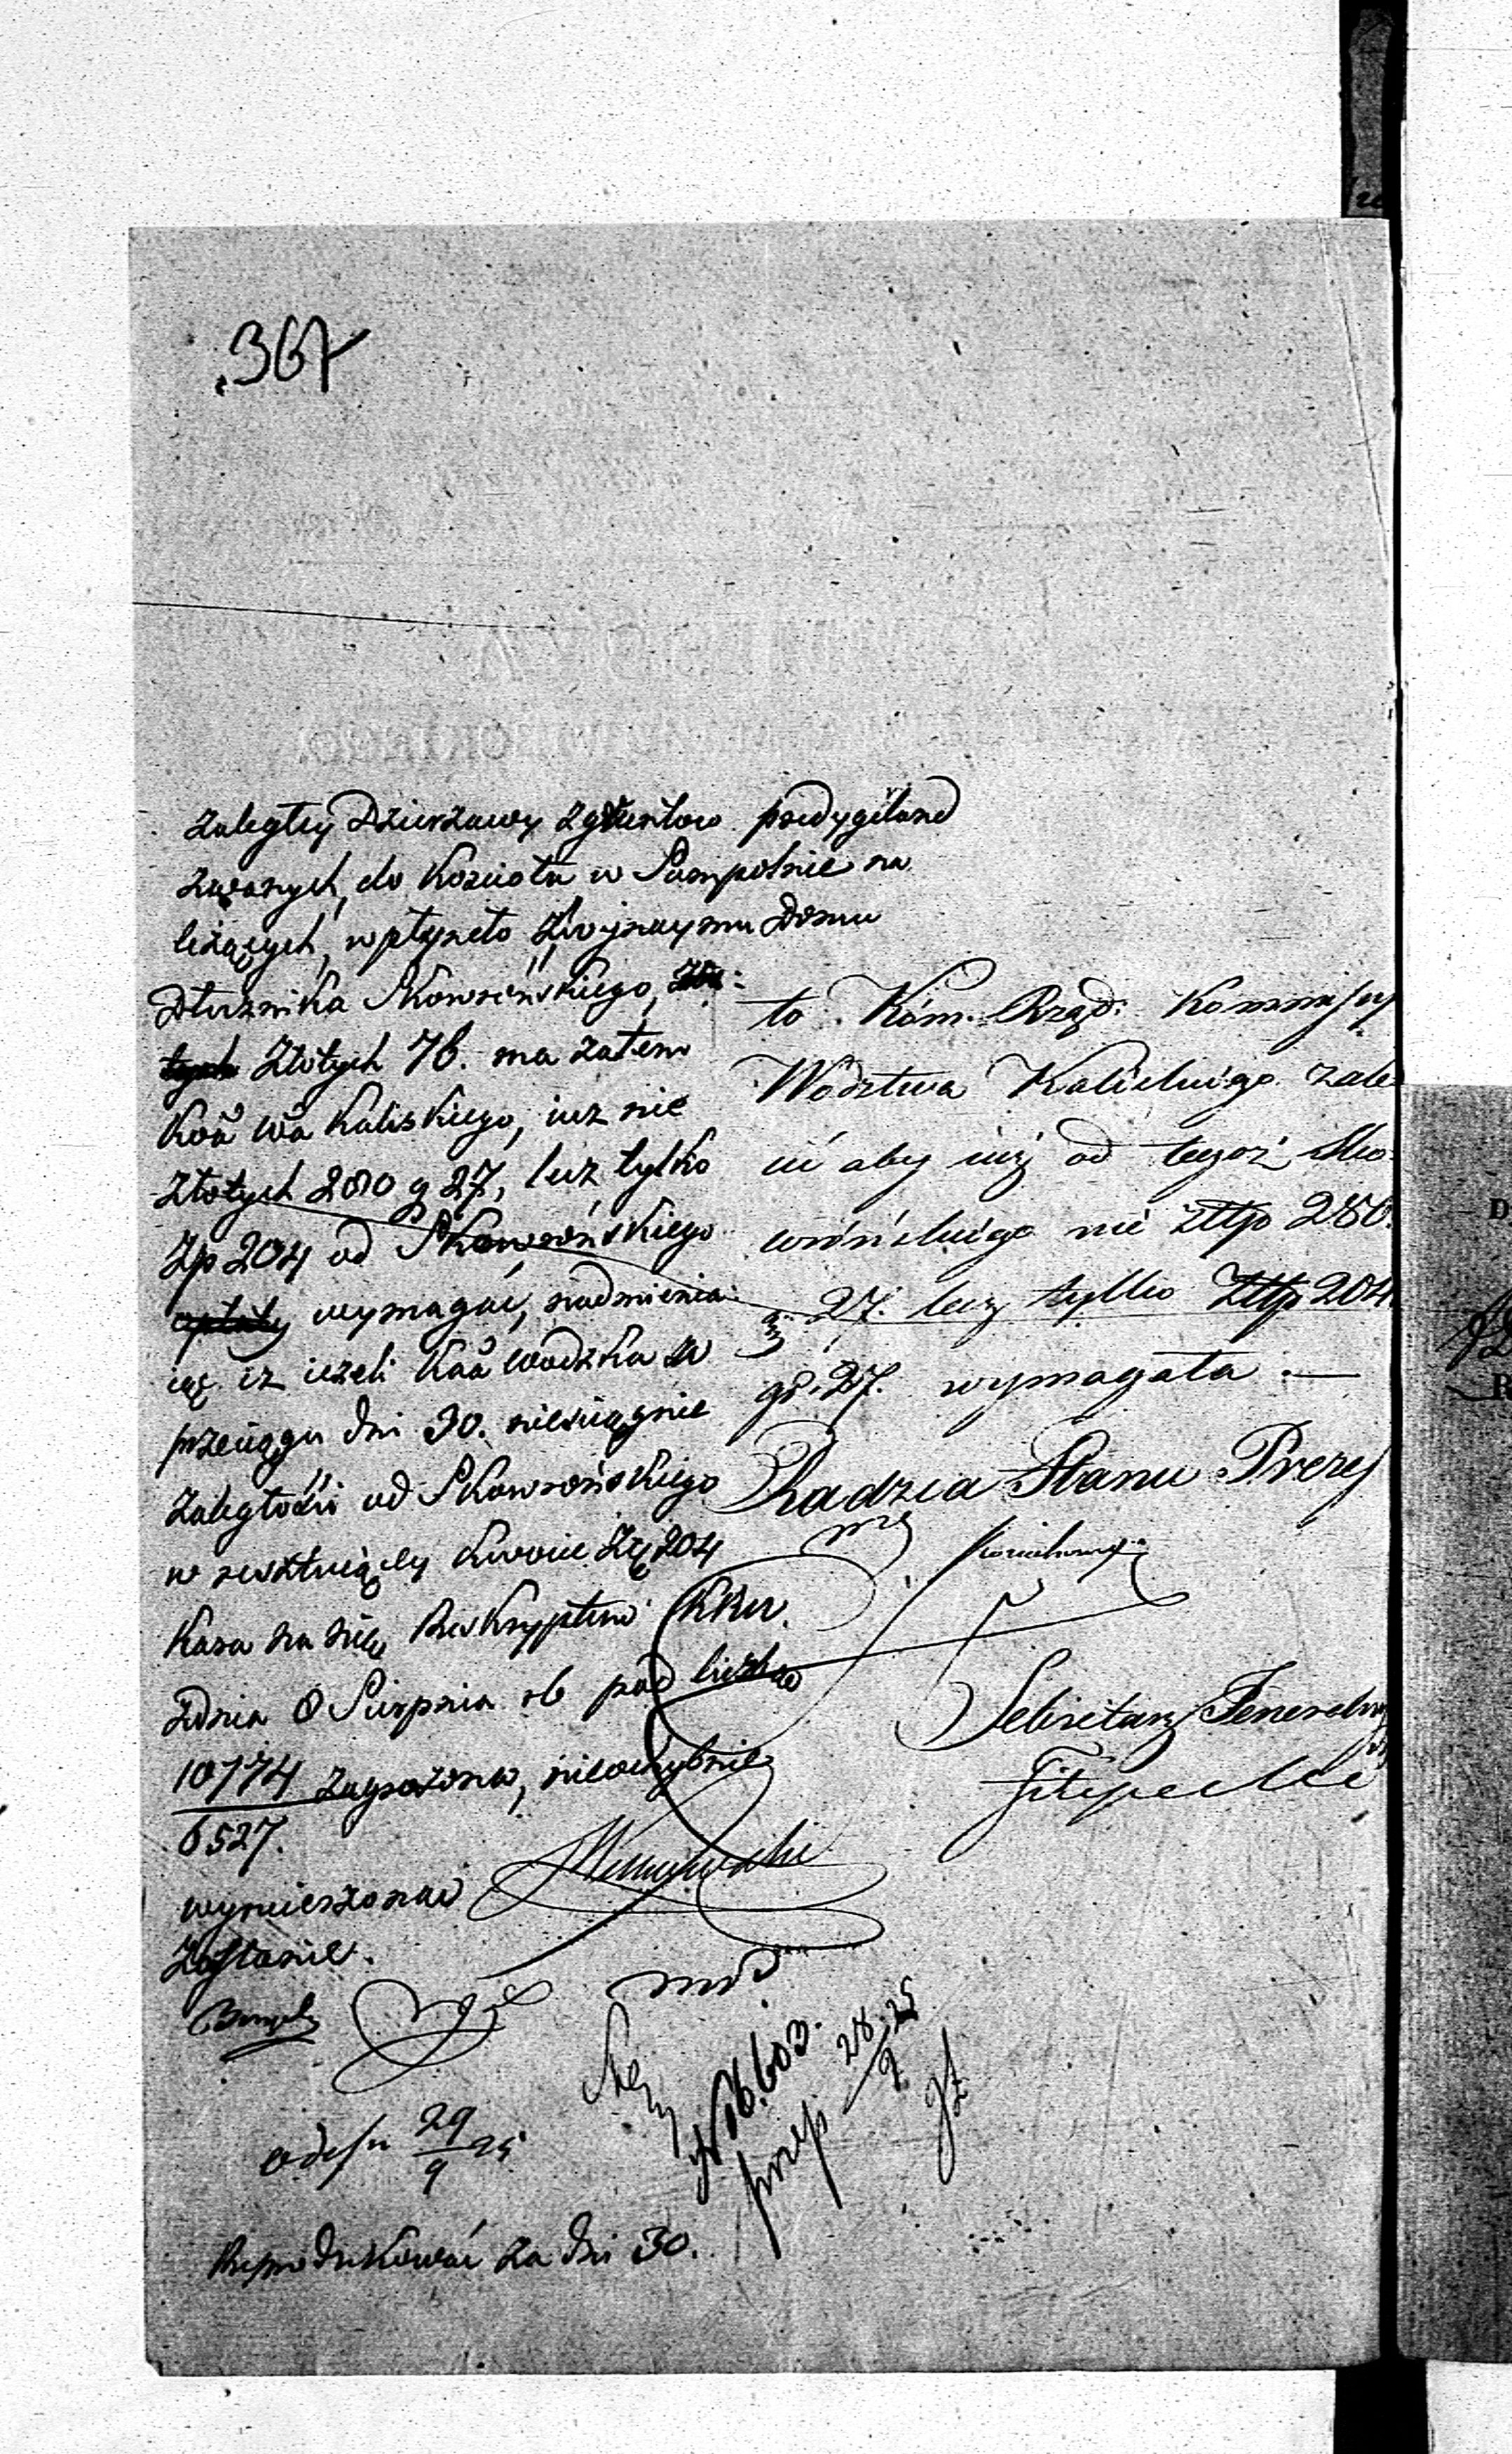 367
zaległey Dzierżawy zgruntow przdygiland
zwanych, do Kościoła w Sompolnie na
leżących, wpłynęło zwójnaymu Domu
Dłużnika Skowrońskiego,
tych Złotych 76. ma zatem
Koã Wa Kaliskiego, iuz nie
złotych 280 g 27, lecz tylko
Zp 204 od Skowrońskiego
opłaty wymagać, nadmienia
iąc iz ieżeli Koã Wodzka w
przeciągu dni 30. nieściągnie
zaległości od Skowrońskiego
w resztuiącey kwocie Złp 204
Kara na nią Reskryptem KRW.
zdnia 8 Sierpnia rb pod liczbą
10774 zagrożona, nieochybnie
6527.
wymierzona
zostanie.
to Kom. Rząd: Kommissyi
Wodztwa Kaliskiego zale
ci aby iuż od tegoż Sko
wrońskiego nie złtp 280.
g. 27. lecz tylko Złtp 204
gr. 27. wymagała. —
Radzca Stanu Prezes
Sekretarz Jeneralny
Filipecki
N 16.603.
28/9 25
odesłn 29/9 25
Reprodukować za dni 30.